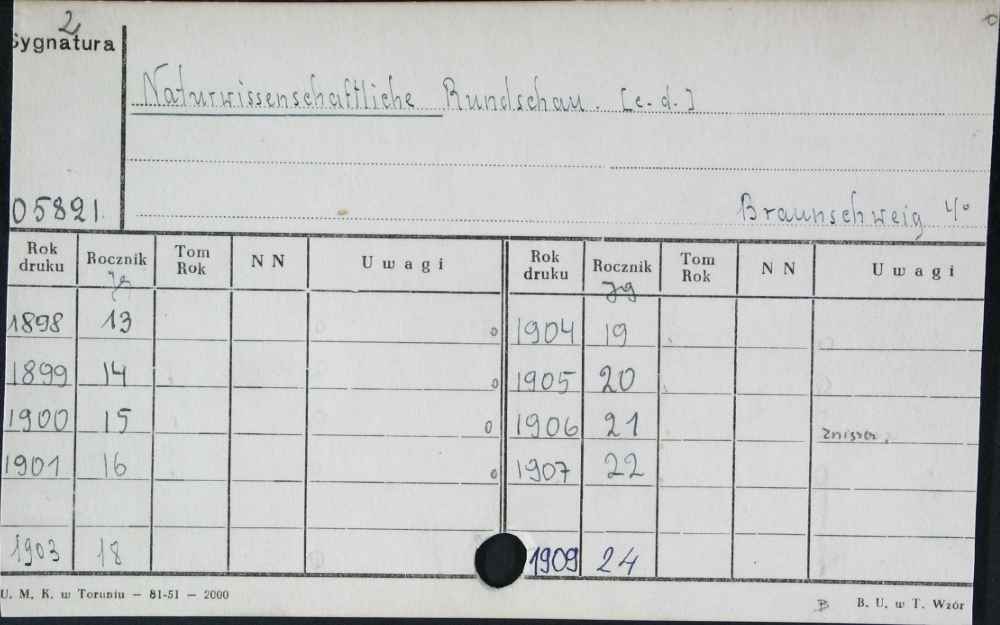 2
Sygnatura
Naturwissenschaftliche Rundschau. [c.d.]
05821.
Braunschweig 4°
Rok druku Rocznik Tom Rok NN Uwagi Rok druku Rocznik Tom Rok NN Uwagi
Jg Jg
1898 13 1904 19
1899 14 1905 20
1900 15 1906 21
1901 16 1907 22
1903 18 1909 24
U. M. K. w Toruniu — 81-51 — 2000
B B. U. w T. Wzór